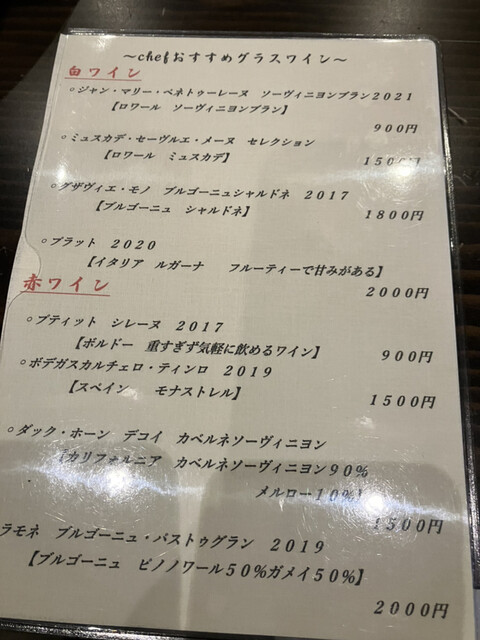 ～chefおすすめグラスワイン～
白ワイン
○ジャン・マリー・ペネトゥーレーヌ ソーヴィニヨンブラン２０２１
【ロワール ソーヴィニヨンブラン】
９００円
○ミュスカデ・セーヴルエ・メーヌ セレクション
【ロワール ミュスカデ】
１５００円
○グザヴィエ・モノ ブルゴーニュシャルドネ ２０１７
【ブルゴーニュ シャルドネ】
１８００円
○ブラット ２０２０
【イタリア ルガーナ フルーティーで甘みがある】
２０００円
赤ワイン
○プティット シレーヌ ２０１７
【ボルドー 重すぎず気軽に飲めるワイン】
９００円
○ボデガスカルチェロ・ティンロ ２０１９
【スペイン モナストレル】
１５００円
○ダック・ホーン デコイ カベルネソーヴィニヨン
【カリフォルニア カベルネソーヴィニヨン９０％
メルロー１０％】
１５００円
ラモネ ブルゴーニュ・パストゥグラン ２０１９
【ブルゴーニュ ピノノワール５０％ガメイ５０％】
２０００円